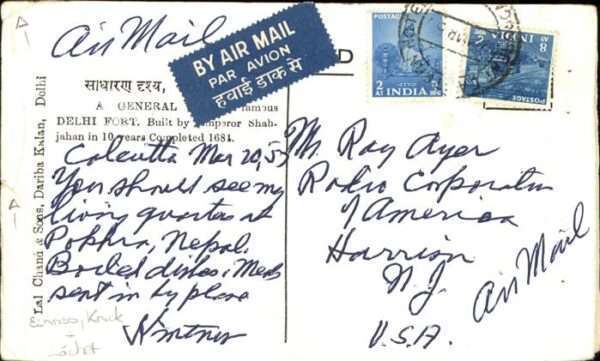 Air Mail
BY AIR MAIL
PAR AVION
हवाई डाक से
साधारण दृश्य,
A GENERAL famous
DELHI FORT. Built by Emperor Shah-
jahan in 10 years Completed 1684.
Lal Chand & Sons, Dariba Kalan, Delhi
Calcutta Mar 20, 57
You should see my
living quarters at
Pokhra, Nepal.
Boiled dishes. Meals
sent in by plane
POSTAGE
2 AS
INDIA
8 AS
INDIA
POSTAGE
Mr. Ray Ayer
Radio Corporation
of America
Harrison
N.J.
U.S.A.
Air Mail